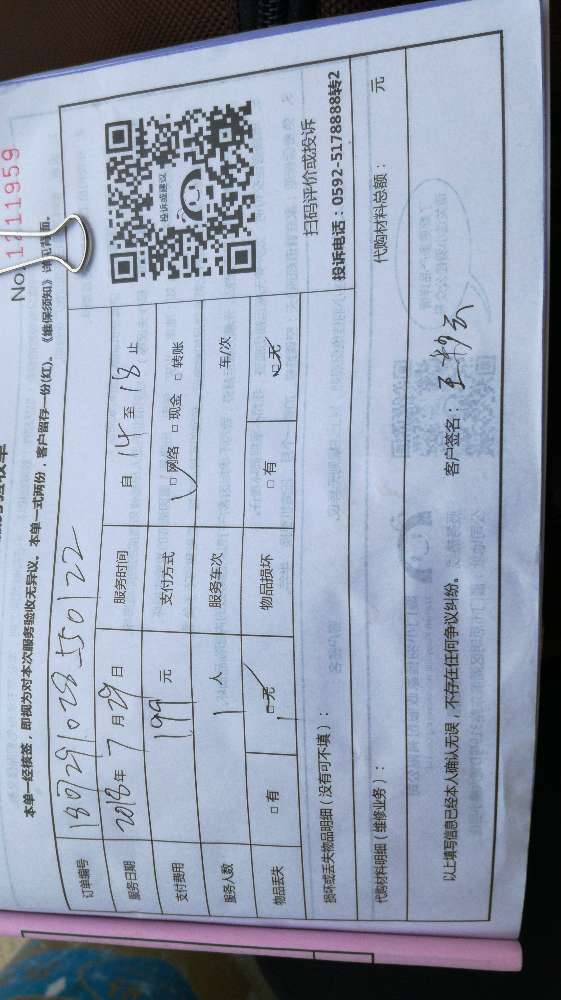 No. 1211959
本单一经核签,即视为对本次服务验收无异议。本单一式两份,客户留存一份(红)。《维保须知》详见背面。
订单编号 1807291028550122
服务日期 2018年7月29日 服务时间 自 14 至 18 止
支付费用 199 元 支付方式 □网络 □现金 □转账
服务人数 1 人 服务车次 车/次
物品丢失 □有 □无 物品损坏 □有 □无
投诉或建议
扫码评价或投诉
投诉电话:0592-5178888转2
损坏或丢失物品明细(没有可不填):
代购材料明细(维修业务): 代购材料总额: 元
以上填写信息已经本人确认无误,不存在任何争议纠纷。 客户签名: